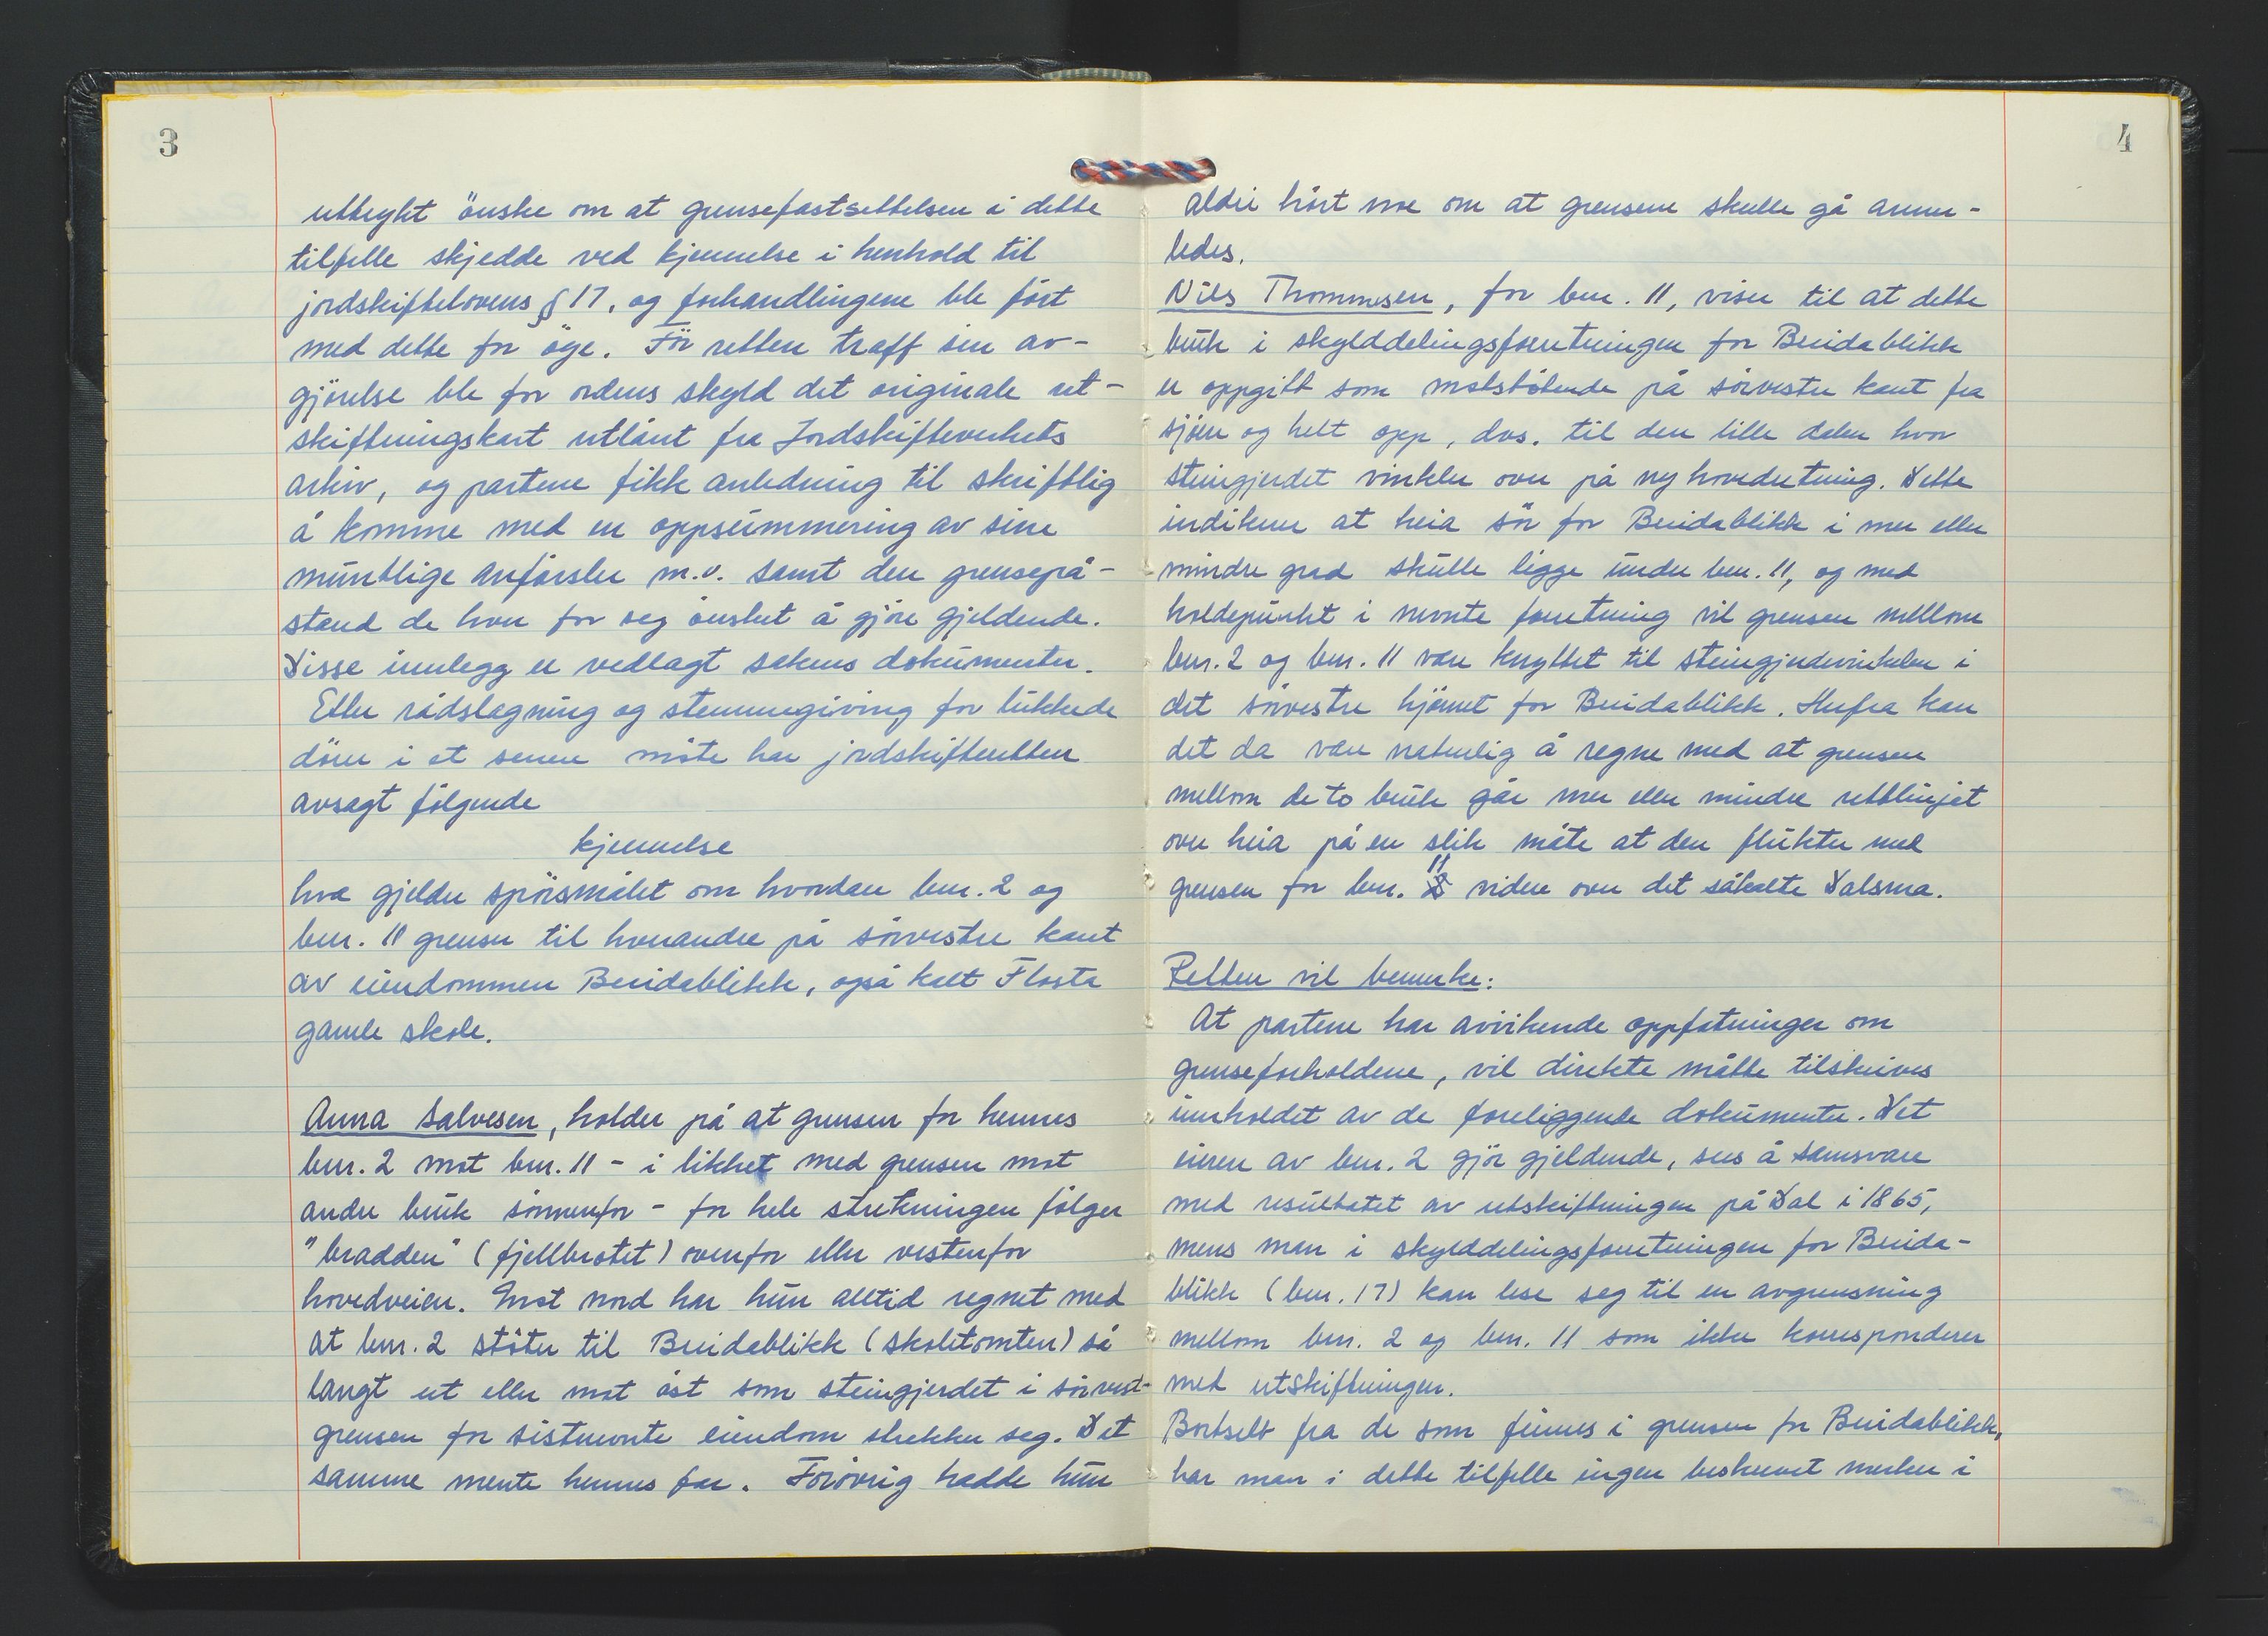 3
uttrykt önske om at grensefastsettelsen i dette
tilfelle skjedde ved kjennelse i henhold til
jordskiftelovens § 17, og forhandlingene ble fört
med dette for öye. För retten traff sin av-
gjörelse ble for ordens skyld det originale ut-
skiftningskart utlånt fra Jordskifteverkets
arkiv, og partene fikk anledning til skriftlig
å komme med en oppsummering av sine
muntlige anförsler m.v. samt den grensepå-
stand de hver for seg önsket å gjöre gjeldende.
Disse innlegg er vedlagt sakens dokumenter.
Etter rådslagning og stemmegiving for lukkede
dörer i et senere möte har jordskifteretten
avsagt fölgende
kjennelse
hva gjelder spörsmålet om hvordan bnr. 2 og
bnr. 11 grenser til hverandre på sörvestre kant
av eiendommen Breidablikk, også kalt Flosta
gamle skole.
Anna Salvesen, holder på at grensen for hennes
bnr. 2 mot bnr. 11 - i likhet med grensen mot
andre bruk sönnenfor - for hele strekningen fölger
"bradden" (fjellbrotet) ovenfor eller vestenfor
hovedveien. Mot nord har hun alltid regnet med
at bnr. 2 stöter til Breidablikk (skoletomten) så
langt ut eller mot öst som steingjerdet i sörvest-
grensen for sistnevnte eiendom strekker seg. Det
samme mente hennes far. Forövrig hadde hun
4
aldri hört noe om at grensene skulle gå annor-
ledes.
Nils Thommesen, for bnr. 11, viser til at dette
bruk i skylddelingsforretningen for Breidablikk
er oppgitt som motstötende på sörvestre kant fra
sjöen og helt opp, dvs. til den lille dalen hvor
steingjerdet vinkler over på ny hovedretning. Dette
indikerer at heia sör for Breidablikk i mer eller
mindre grad skulle ligge under bnr. 11, og med
holdepunkt i nevnte forretning vil grensen mellom
bnr. 2 og bnr. 11 være knyttet til steingjerdevinkelen i
det sörvestre hjörnet for Breidablikk. Herfra kan
det da være naturlig å regne med at grensen
mellom de to bruk går mer eller mindre rettlinjet
over heia på en slik måte at den flukter med
grensen for bnr. 11 videre over det såkalte Dalsma.
Retten vil bemerke:
At partene har avvikende oppfatninger om
grenseforholdene, vil direkte måtte tilskrives
innholdet av de foreliggende dokumenter. Det
eieren av bnr. 2 gjör gjeldende, sees å samsvare
med resultatet av utskiftningen på Dal i 1865,
mens man i skylddelingsforretningen for Breida-
blikk (bnr. 17) kan lese seg til en avgrensning
mellom bnr. 2 og bnr. 11 som ikke korresponderer
med utskiftningen.
Bortsett fra de som finnes i grensen for Breidablikk,
har man i dette tilfelle ingen beskrevet merker i